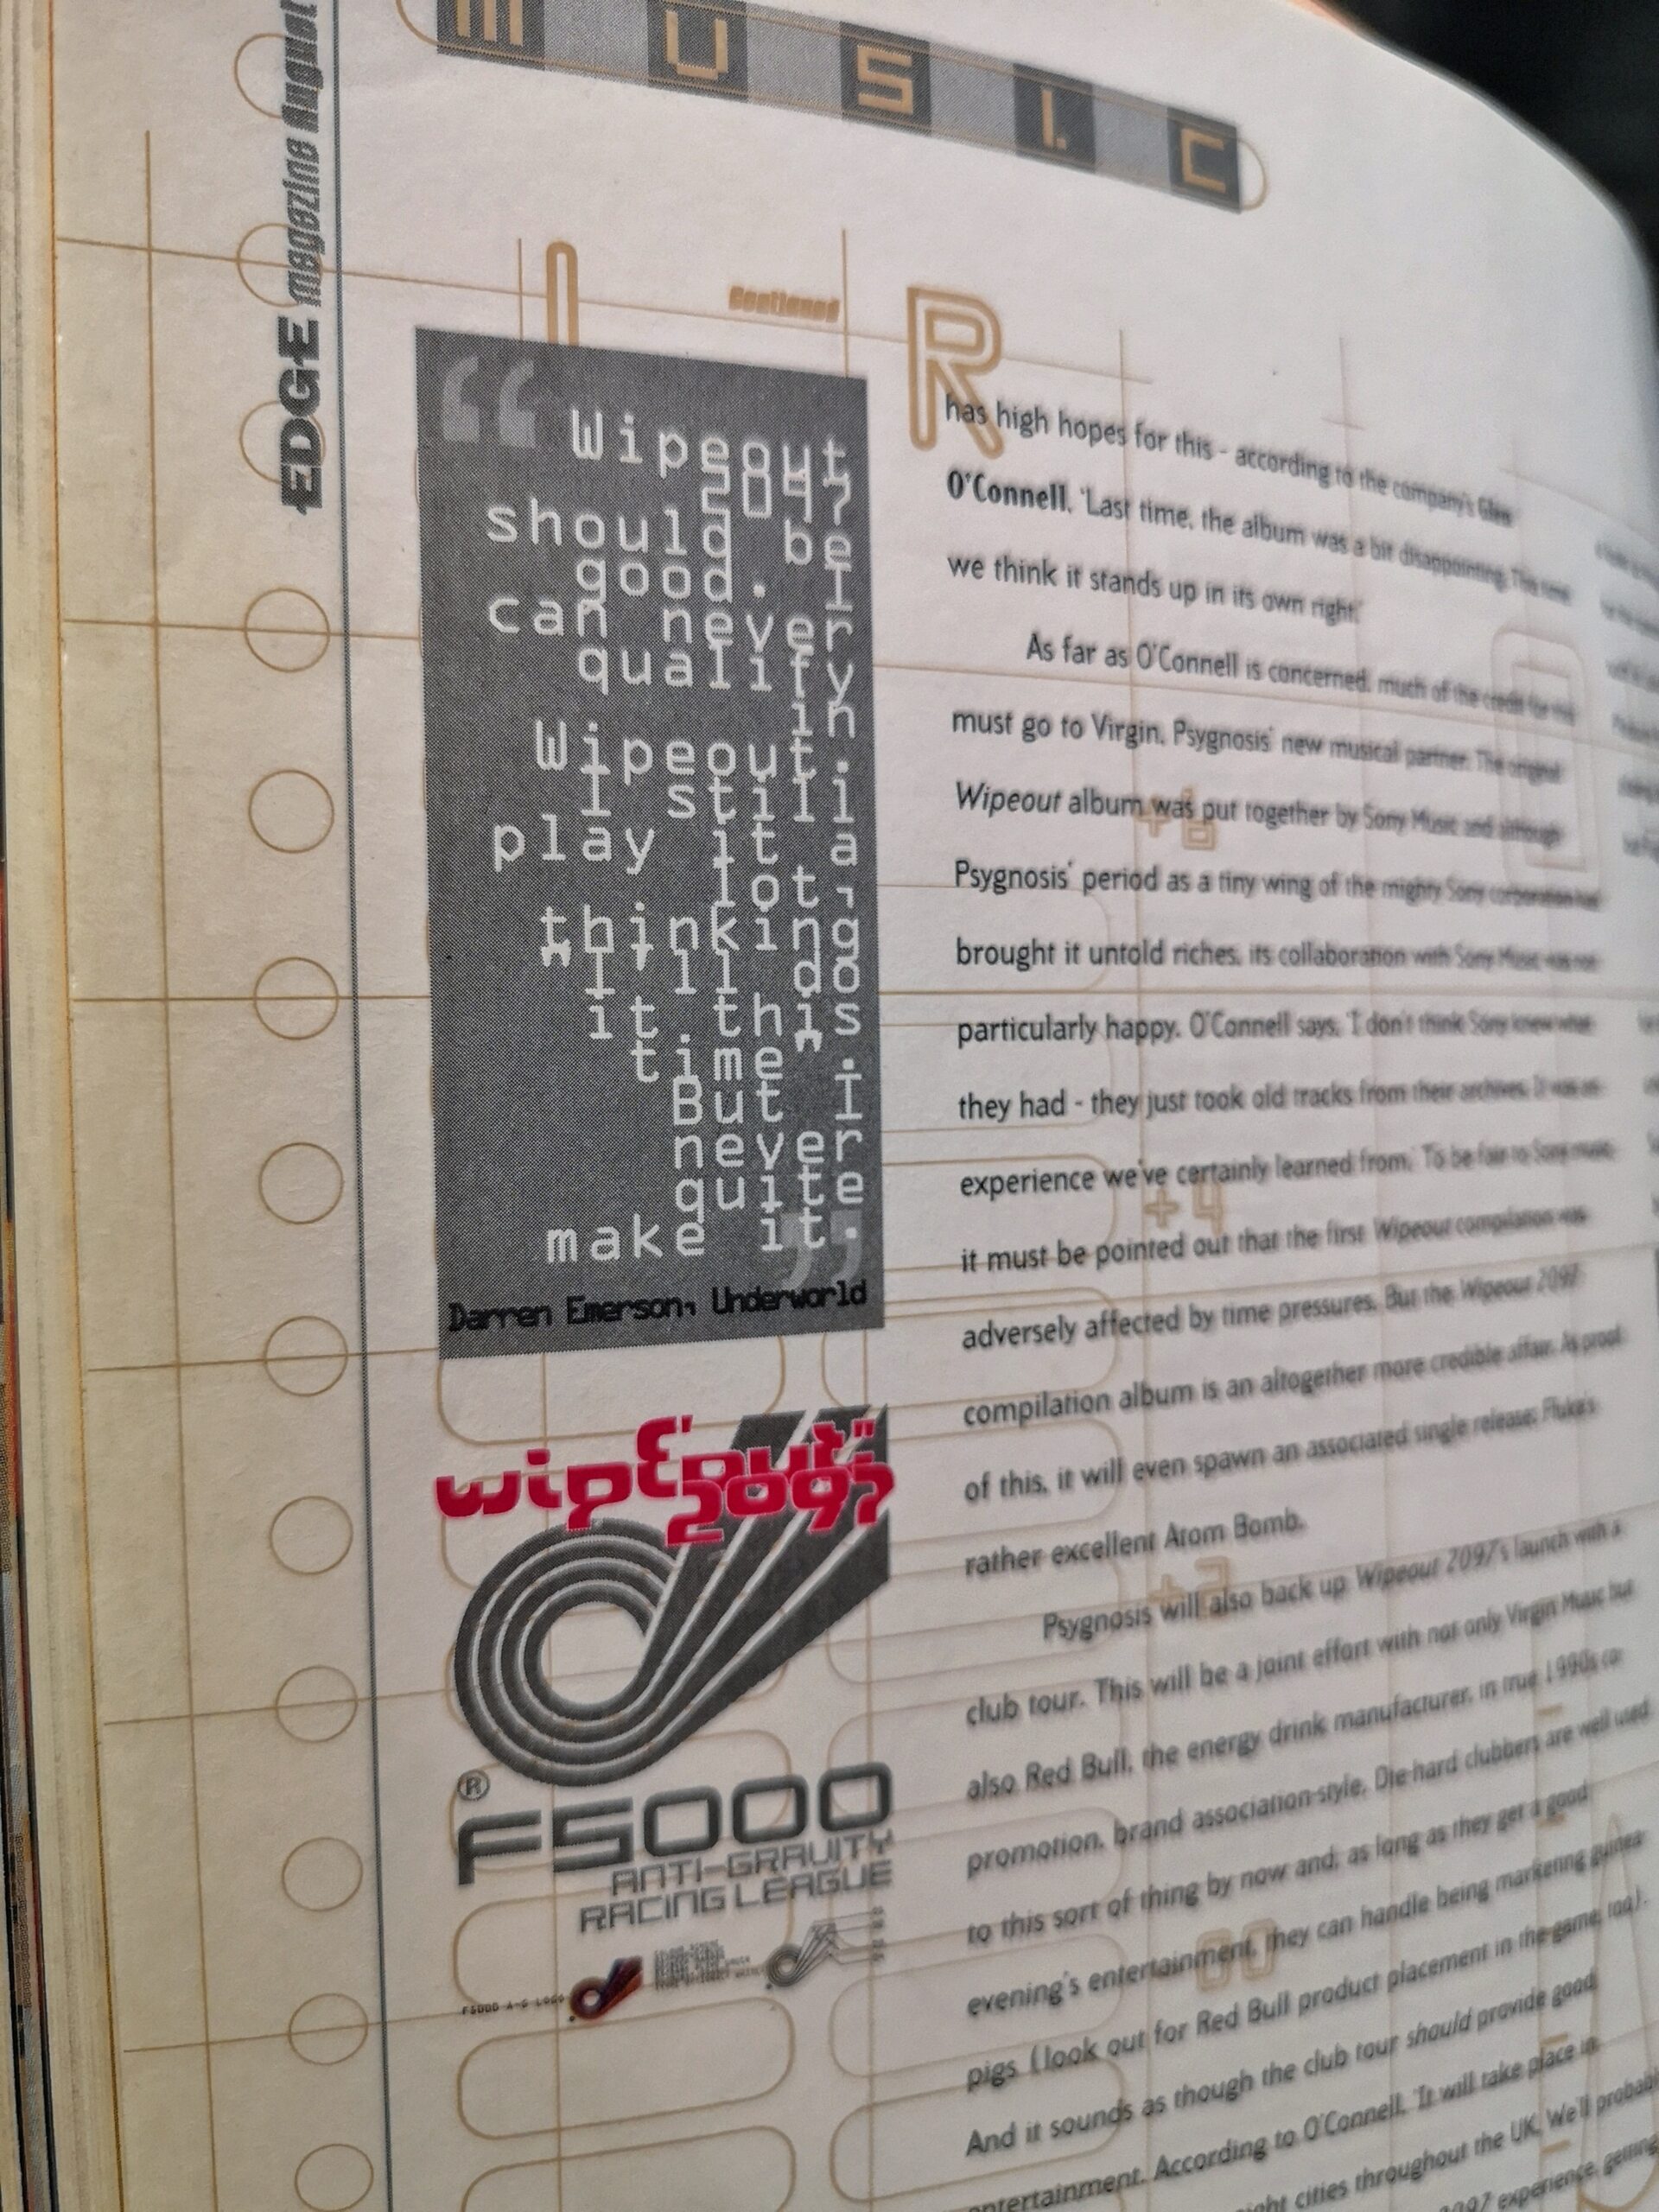 MUSIC
EDGE magazine August
L
Continued
R
“
Wipeout
2097
should be
good. I
can never
qualify
in
Wipeout.
I still
play it a
lot,
thinking
"I'll do
it this
time".
But I
never
quite
make it.
”
Darren Emerson, Underworld
wipEout"
2097
®
F5000
ANTI-GRAVITY
RACING LEAGUE
F5000 A-G LOGO
has high hopes for this - according to the company's Glen
O'Connell, 'Last time, the album was a bit disappointing. This time
we think it stands up in its own right.'
As far as O'Connell is concerned, much of the credit for this
must go to Virgin, Psygnosis' new musical partner. The original
Wipeout album was put together by Sony Music and although
Psygnosis' period as a tiny wing of the mighty Sony corporation had
brought it untold riches, its collaboration with Sony Music was not
particularly happy. O'Connell says, 'I don't think Sony knew what
they had - they just took old tracks from their archives. It was an
experience we've certainly learned from.' To be fair to Sony music,
it must be pointed out that the first Wipeout compilation was
adversely affected by time pressures. But the Wipeout 2097
compilation album is an altogether more credible affair. As proof
of this, it will even spawn an associated single release: Fluke's
rather excellent Atom Bomb.
Psygnosis will also back up Wipeout 2097's launch with a
club tour. This will be a joint effort with not only Virgin Music but
also Red Bull, the energy drink manufacturer, in true 1990s co-
promotion, brand association-style. Die-hard clubbers are well used
to this sort of thing by now and, as long as they get a good
evening's entertainment, they can handle being marketing guinea
pigs (look out for Red Bull product placement in the game, too).
And it sounds as though the club tour should provide good
entertainment. According to O'Connell, 'It will take place in
cities throughout the UK. We'll probably
2097 experience, getting
+6
+4
+2
00